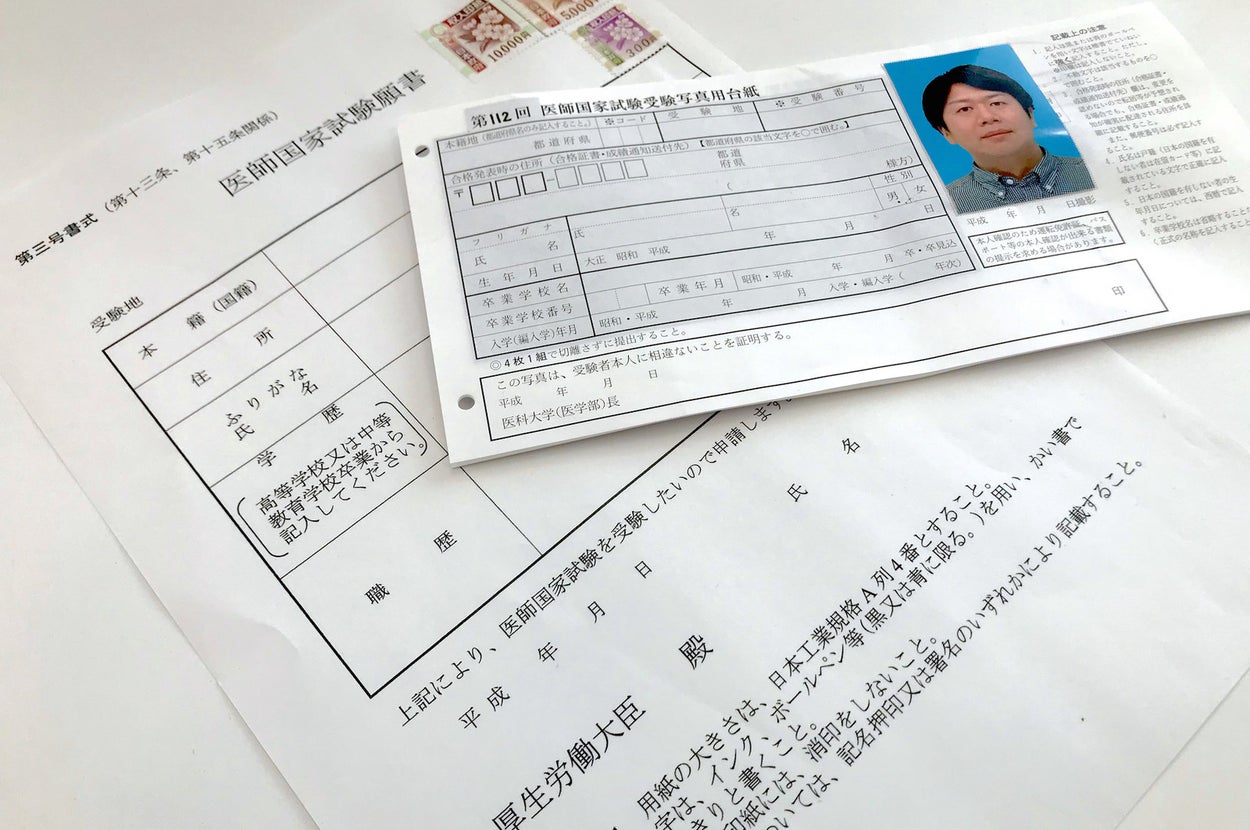 収入印紙
10,000円
5,000
300
第三号書式(第十三条、第十五条関係)
医師国家試験願書
受験地
本籍(国籍)
住所
ふりがな
氏名
学歴
(高等学校又は中等
教育学校卒業から
記入してください。)
職歴
上記により、医師国家試験を受験したいので申請します。
平成 年 月 日
氏名
厚生労働大臣 殿
用紙の大きさは、日本工業規格A列4番とすること。
字は、インク、ボールペン等(黒又は青に限る。)を用い、かい書で
きりと書くこと。
印紙には、消印をしないこと。
ついては、記名押印又は署名のいずれかにより記載すること。
第112回 医師国家試験受験写真用台紙
本籍地(都道府県名のみ記入すること。) ※コード 受験地 ※受験番号
都道府県
合格発表時の住所(合格証書・成績通知送付先)【都道府県の該当文字を○で囲む。】
〒 - 都道府県
( 様方)
フリガナ 性別
氏名 氏 名 男・女
生年月日 大正 昭和 平成 年 月 日
卒業学校名
卒業学校番号 卒業年月 昭和・平成 年 月 卒・卒見込
入学(編入学)年月 昭和・平成 年 月 入学・編入学( 年次)
◎4枚1組で切離さずに提出すること。
この写真は、受験者本人に相違ないことを証明する。
平成 年 月 日
医科大学(医学部)長 印
平成 年 月 日撮影
本人確認のため運転免許証、パス
ポート等の本人確認が出来る書類
の提示を求める場合があります。
記載上の注意